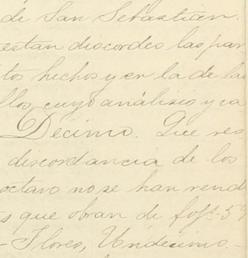 de San Sebastián.
estan discordes las par
tos hechos y en la de las
llos, cuyo análisis y ca
Décimo. Que res
discordancia de los
octavo no se han rend
s que obran de fojs. 5
- Flores, Undécimo.-